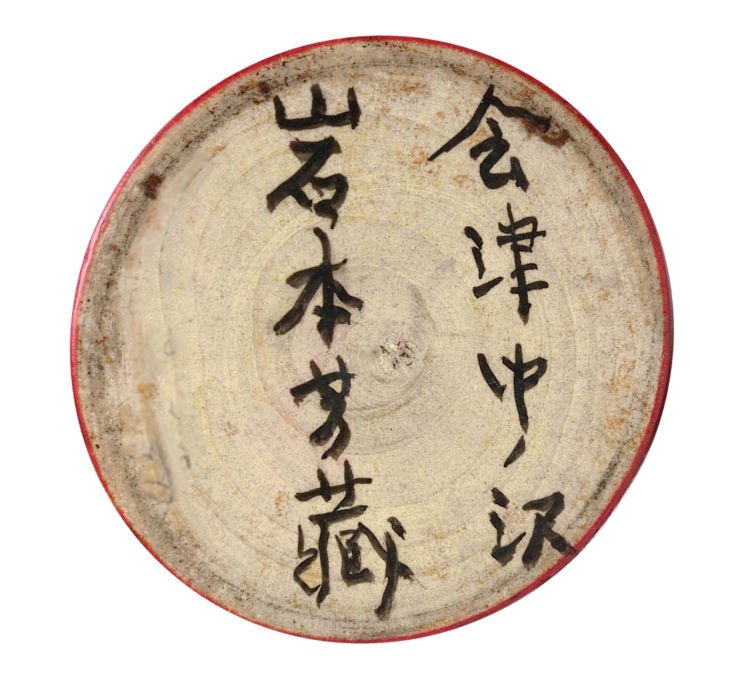 会津中ノ沢
岩本芳藏